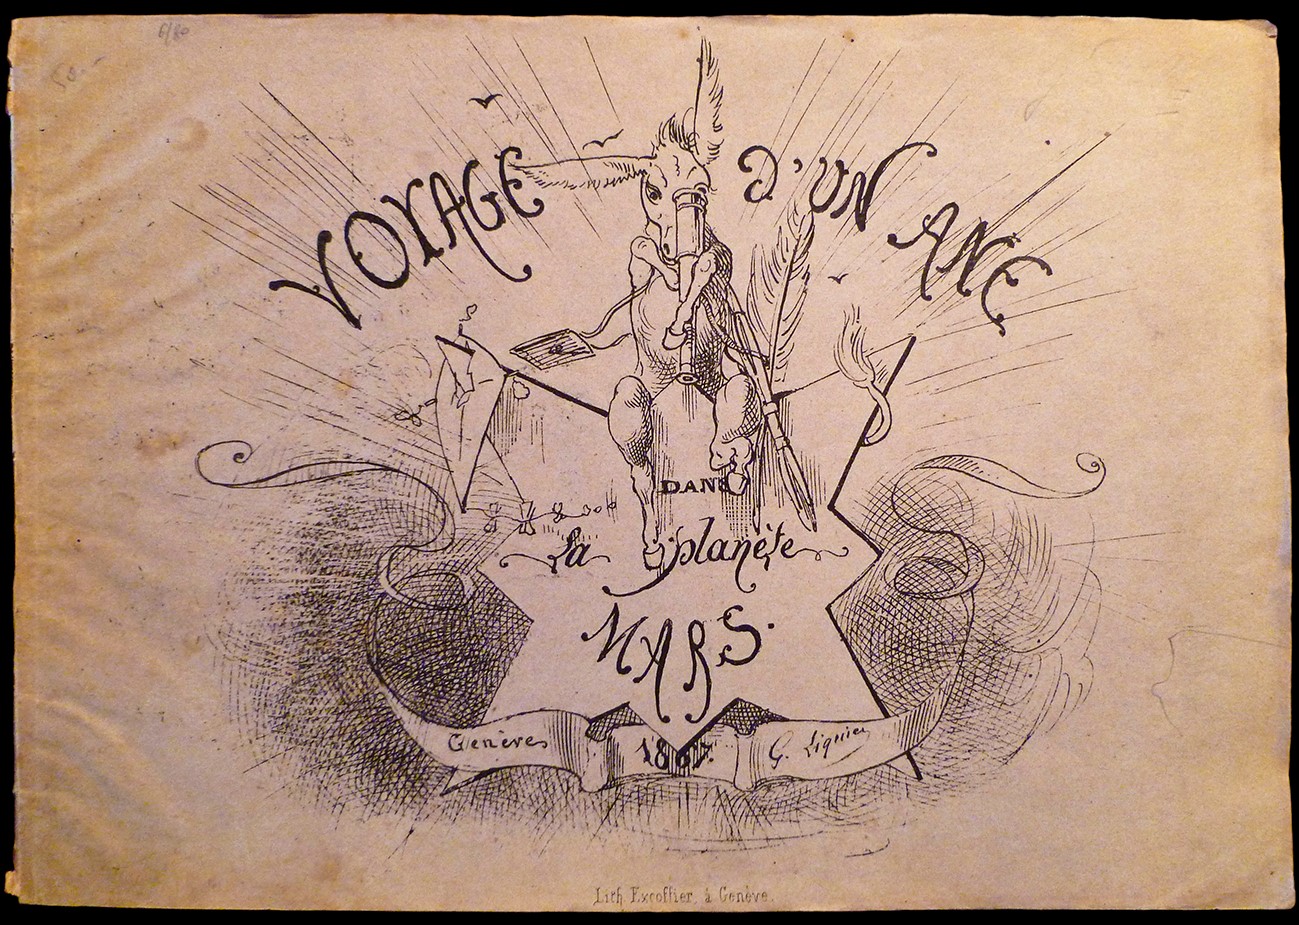 VOYAGE D'UN ANE
DANS
la planète
MARS.
Genève 1867. G. Liquier
Lith. Excoffier, à Genève.